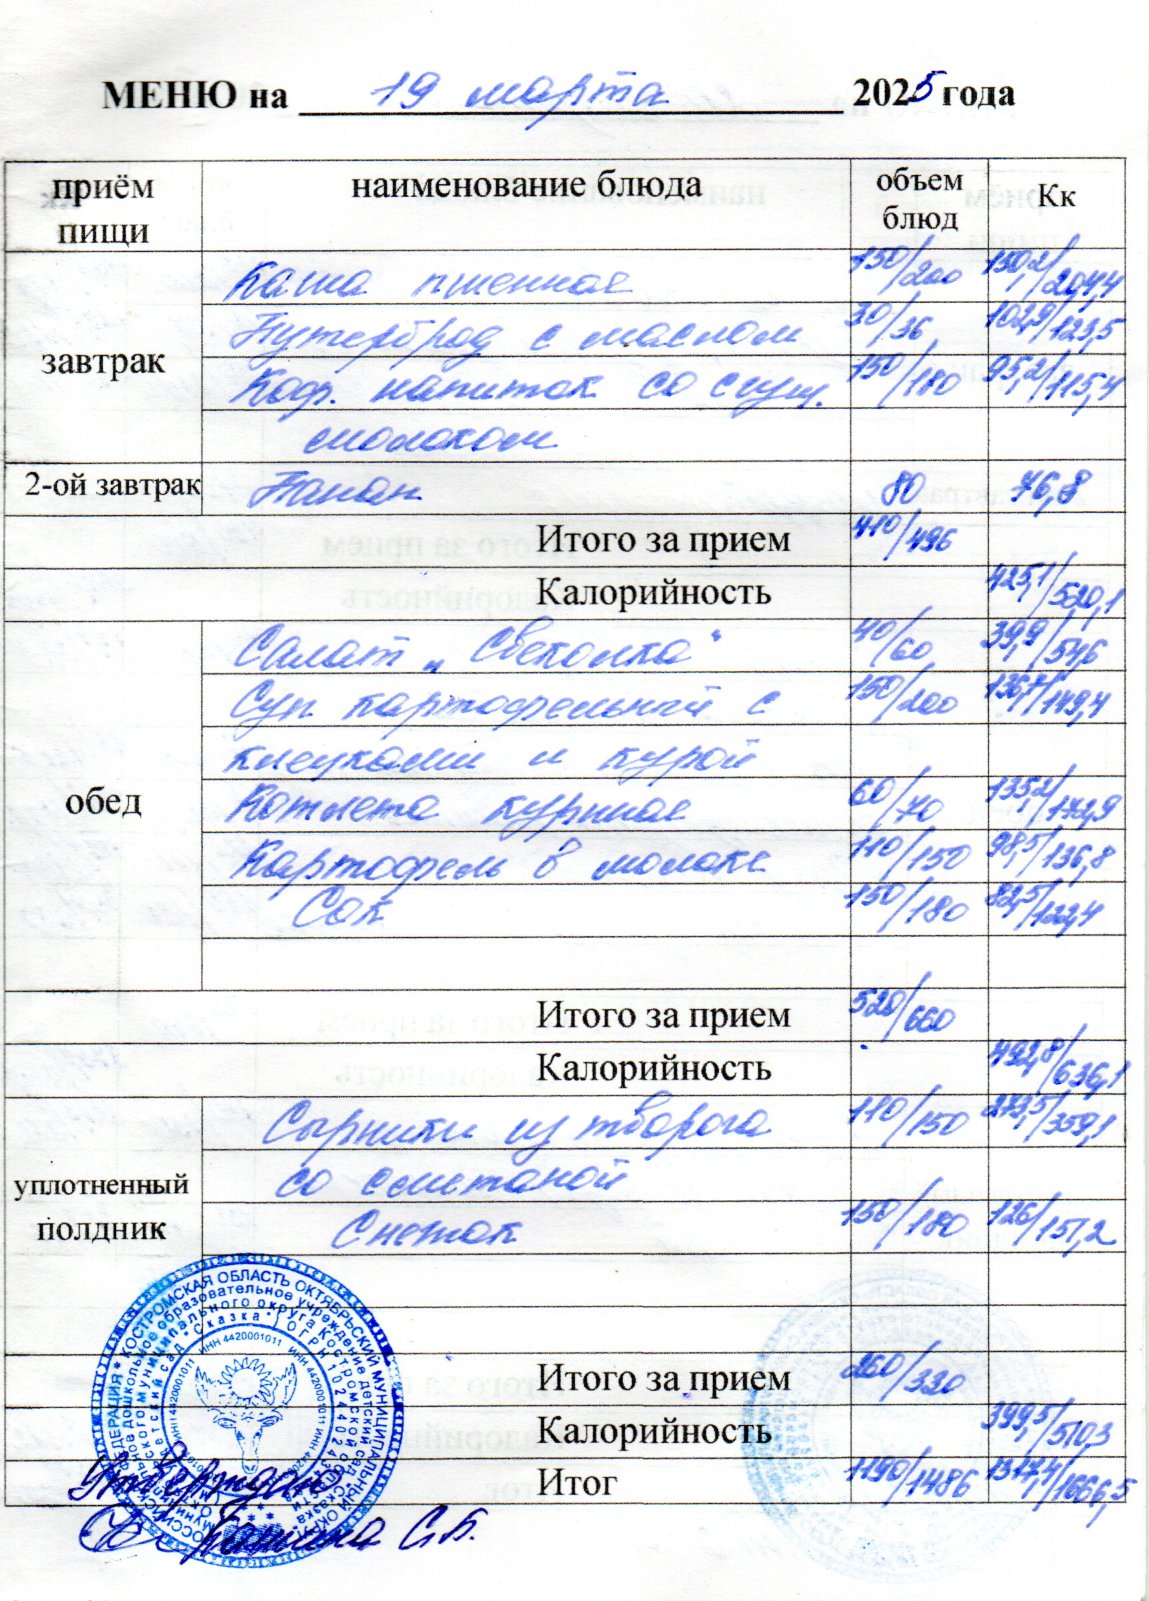 МЕНЮ на 19 марта 2025 года
приём пищи наименование блюда объем блюд Кк
завтрак
Каша пшенная 150/200 150,2/204,4
Бутерброд с маслом 30/36 102,9/123,5
Коф. напиток со сгущ. 150/180 95,2/115,4
молоком
2-ой завтрак Банан 80 76,8
Итого за прием 410/496
Калорийность 425,1/520,1
обед
Салат „Свеколка" 40/60 39,9/54,6
Суп картофельный с 150/200 136,7/149,4
клецками и курой
Котлета куриная 60/70 135,2/172,9
Картофель в молоке 110/150 98,5/136,8
Сок 150/180 82,5/122,4
Итого за прием 520/660
Калорийность 492,8/636,1
уплотненный полдник
Сырники из творога 110/150 273,5/359,1
со сметаной
Снежок 150/180 126/151,2
Итого за прием 260/330
Калорийность 399,5/510,3
Итог 1190/1486 1317,4/1666,5
Утверждаю
С.Б.
КОСТРОМСКАЯ ОБЛАСТЬ ОКТЯБРЬСКИЙ МУНИЦИПАЛЬНЫЙ ОКРУГ
дошкольное образовательное учреждение детский сад "Сказка"
муниципального округа Костромской области
детский сад "Сказка"
ИНН 4420001011 ИНН 4420001011